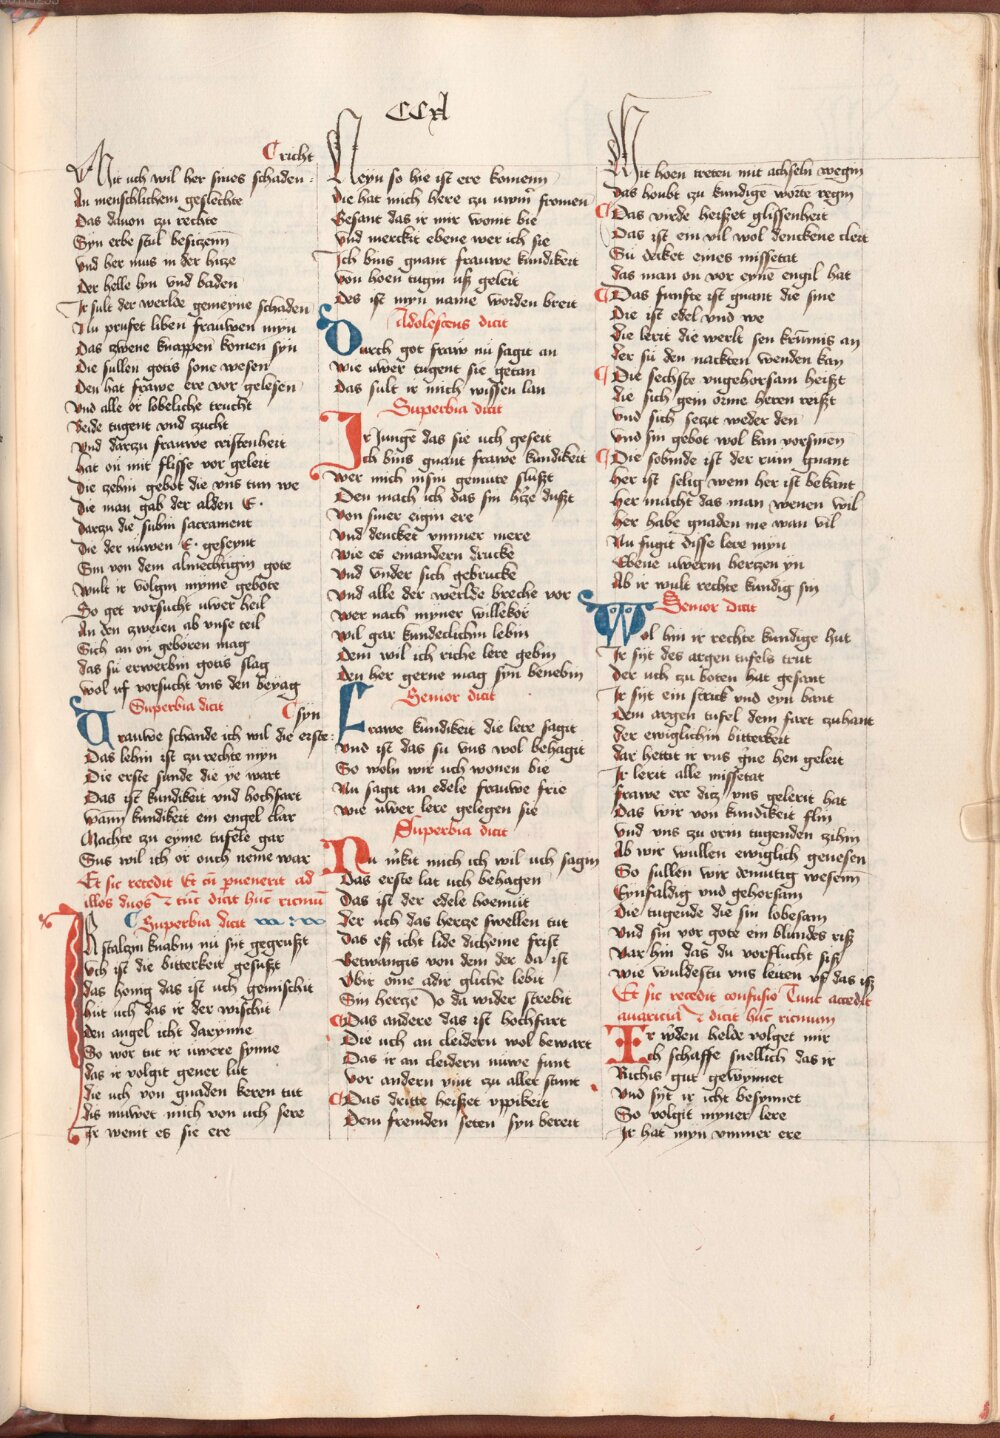 CCXI
richt
Mit uch wil her sines schaden
An menschlichem geslechte
Das dauon zu rechte
Syn erbe stul besiczenn
Vnd her mus in der hicze
Der helle lyn vnd baden
Ir sult der werlde gemeyne schaden
Nu prufet liben frauwen myn
Das zwene knappen komen syn
Die sullen gotis sone wesen
Den hat frawe ere vor gelesen
Vnd alle ör lobeliche trucht
Beide tugent vnd zucht
Vnd darzu frauwe cristenheit
Hat on mit flisse vor geleit
Die zehin gebot die vns tun we
Die man gab der alden E.
Darzu die subin sacrament
Die der nuwen E. geseynt
Sin von dem almechtigin gote
Wult ir volgin myme gebote
So get vorsucht uwer heil
An den zweien ab vnse teil
Sich an on geboren mag
Das su erwerbin gotis slag
Wol uf vorsucht vns den beyag
Superbia dicit
syn
Frauwe schande ich wil die erste
Das lebin ist zu rechte myn
Die erste sunde die ye wart
Das ist kundikeit vnd hochfart
Wann kundikeit ein engel clar
Machte zu eyme tufele gar
Sus wil ich or ouch neme war
Et sic recedit Et cum peruenerit ad
illos duos tunc dicat hunc ricmum
Superbia dicit
Ir stalczin knabin nu sint gegrußt
Uch ist die bitterkeit gesußt
Das honig das ist uch gemischit
Hut uch das ir der wischit
Den angel icht darynne
So wor tut ir uwere synne
Das ir volgit gener lut
Die uch von gnaden keren tut
Dis muwet mich von uch sere
Ir wenit es sie ere
Neyn so hie ist ere komenn
Die hat mich here zu uwern fromen
Gesant das ir mir wonit bie
Vnd merckit ebene wer ich sie
Ich bins gnant frauwe kundikeit
Von hoen tugin uß geleit
Des ist myn name worden breit
Adolescens dicit
Durch got fraw nu sagit an
Wie uwer tugent sie getan
Das sult ir mich wissen lan
Superbia dicit
Ir Junge das sie uch geseit
Ich bins gnant frawe kundikeit
Wer mich in sin gemute slußt
Den mach ich das sin hercze dußt
Von siner eigin ere
Vnd dencket ummer mere
Wie es einandern drucke
Vnd vnder sich gebrucke
Vnd alle der werlde breche vor
Wer nach myner willekör
Wil gar kundeclichin lebin
Dem wil ich riche lere gebin
Den her gerne mag syn benebin
Senior dicit
Frawe kundikeit die lere sagit
Vnd ist das su vns wol behagit
So woln wir uch wonen bie
Nu sagit an edele frauwe frie
Wie uwer lere gelegen sie
Superbia dicit
Nu merkit mich ich wil uch sagin
Das erste lat uch behagen
Das ist der edele hoemut
Der uch das hercze swellen tut
Das eß icht lide dicheine frist
Betwangis von dem der da ist
Obir ome adir gliche lebit
Sin hercze jo da wider strebit
Das andere das ist hochfart
Die uch an cleidern wol bewart
Das ir an cleidern nuwe funt
Vor andern vint zu aller stunt
Das dritte heißet vppikeit
Dem fremden seten syn bereit
Mit hoen treten mit achseln wegin
Das houbt zu kundige worte regin
Das virde heißet glissenheit
Das ist ein vil wol denckene cleit
Su decket eines missetat
Das man on vor eyne engil hat
Das funfte ist gnant die sme
Die ist edel vnd we
Die lerit die werlt sen krummis an
Der su den nackten wenden kan
Die sechste vngehorsam heißt
Die sich gein orme heren reißt
Vnd sich seczit weder den
Vnd sin gebot wol kan vorsmen
Die sobinde ist der rum gnant
Her ist selig wem her ist bekant
Her macht das man wenen wil
Her habe gnaden me wan vil
Nu fugit disse lere myn
Ebene uwerm herczen yn
Ab ir wult rechte kundig sin
Senior dicit
Wol hin ir rechte kundige hut
Ir syt des argen tufels trut
Der uch zu boten hat gesant
Ir syt ein strick vnd eyn bant
Dem argen tufel dem fart zuhant
Der ewiglichin bitterkeit
Dar hettit ir vns gerne hen geleit
Ir lerit alle missetat
Frawe ere dicz vns gelerit hat
Das wir von kundikeit flin
Vnd vns zu orin tugenden zihin
Ab wir wullen ewiglich genesen
So sullen wir demutig wesenn
Eynfaldig vnd gehorsam
Die tugende die sin lobesam
Vnd sin vor gote ein blundes riß
Var hin das du vorflucht sist
Wie wuldestu vns leiten vf das iß
Et sic recedit confusio Tunc accedit
auaricia et dicit hunc ricmum
Ir werden helde volget mir
Ich schaffe snellich das ir
Richis gut gewynnet
Vnd syt ir icht besynnet
So volgit myner lere
Ir hat myn vmmer ere